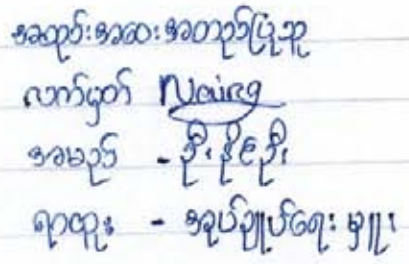 အထုပ်အဝေးအတည်ပြုသူ
လက်မှတ် Naing
အမည် - ဦးနိုင်ဦး
ရာထူး - အုပ်ချုပ်ရေးမှူး